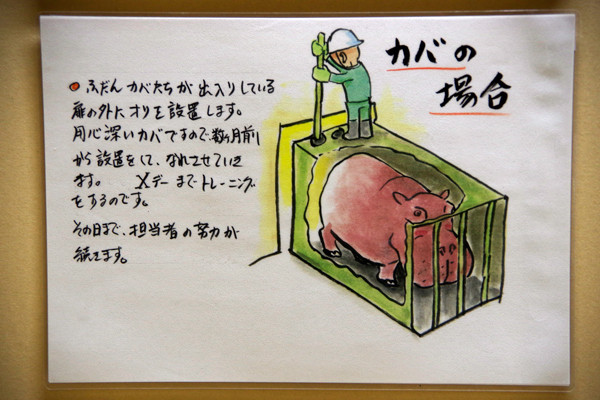 カバの
場合
ふだん カバたちが 出入りしている
扉の外に オリを 設置します。
用心深いカバですので、数ヶ月前
から 設置をして、なれさせていき
ます。 Xデー までトレーニング
をするのです。
その日まで、担当者の努力が
続きます。